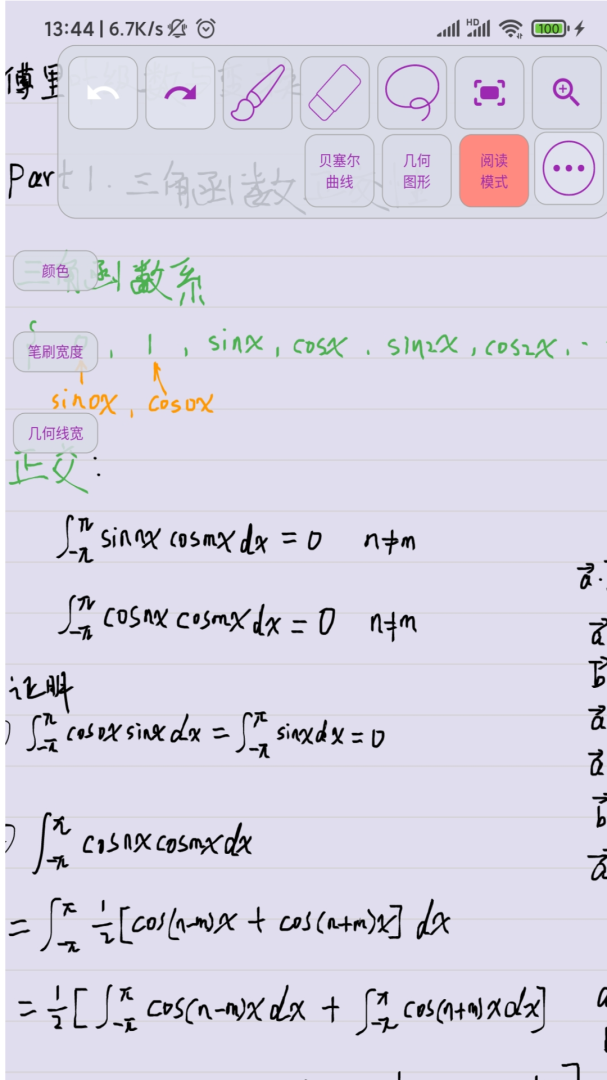 13:44 | 6.7K/s HD 100
傅里
贝塞尔曲线 几何图形 阅读模式
Part 1. 三角函数
颜色
三角函数系
笔刷宽度
{ 0, 1, sinx, cosx, sin2x, cos2x, ··
sin0x, cos0x
几何线宽
正交:
∫_{-π}^{π} sin nx cos mx dx = 0 n≠m
a⃗·
∫_{-π}^{π} cos nx cos mx dx = 0 n≠m
a⃗
证明
b⃗
) ∫_{-π}^{π} cos0x sinx dx = ∫_{-π}^{π} sinx dx = 0
a⃗
a⃗
b⃗
) ∫_{-π}^{π} cos nx cos mx dx
a⃗
= ∫_{-π}^{π} 1/2 [cos(n-m)x + cos(n+m)x] dx
= 1/2 [ ∫_{-π}^{π} cos(n-m)x dx + ∫_{-π}^{π} cos(n+m)x dx]